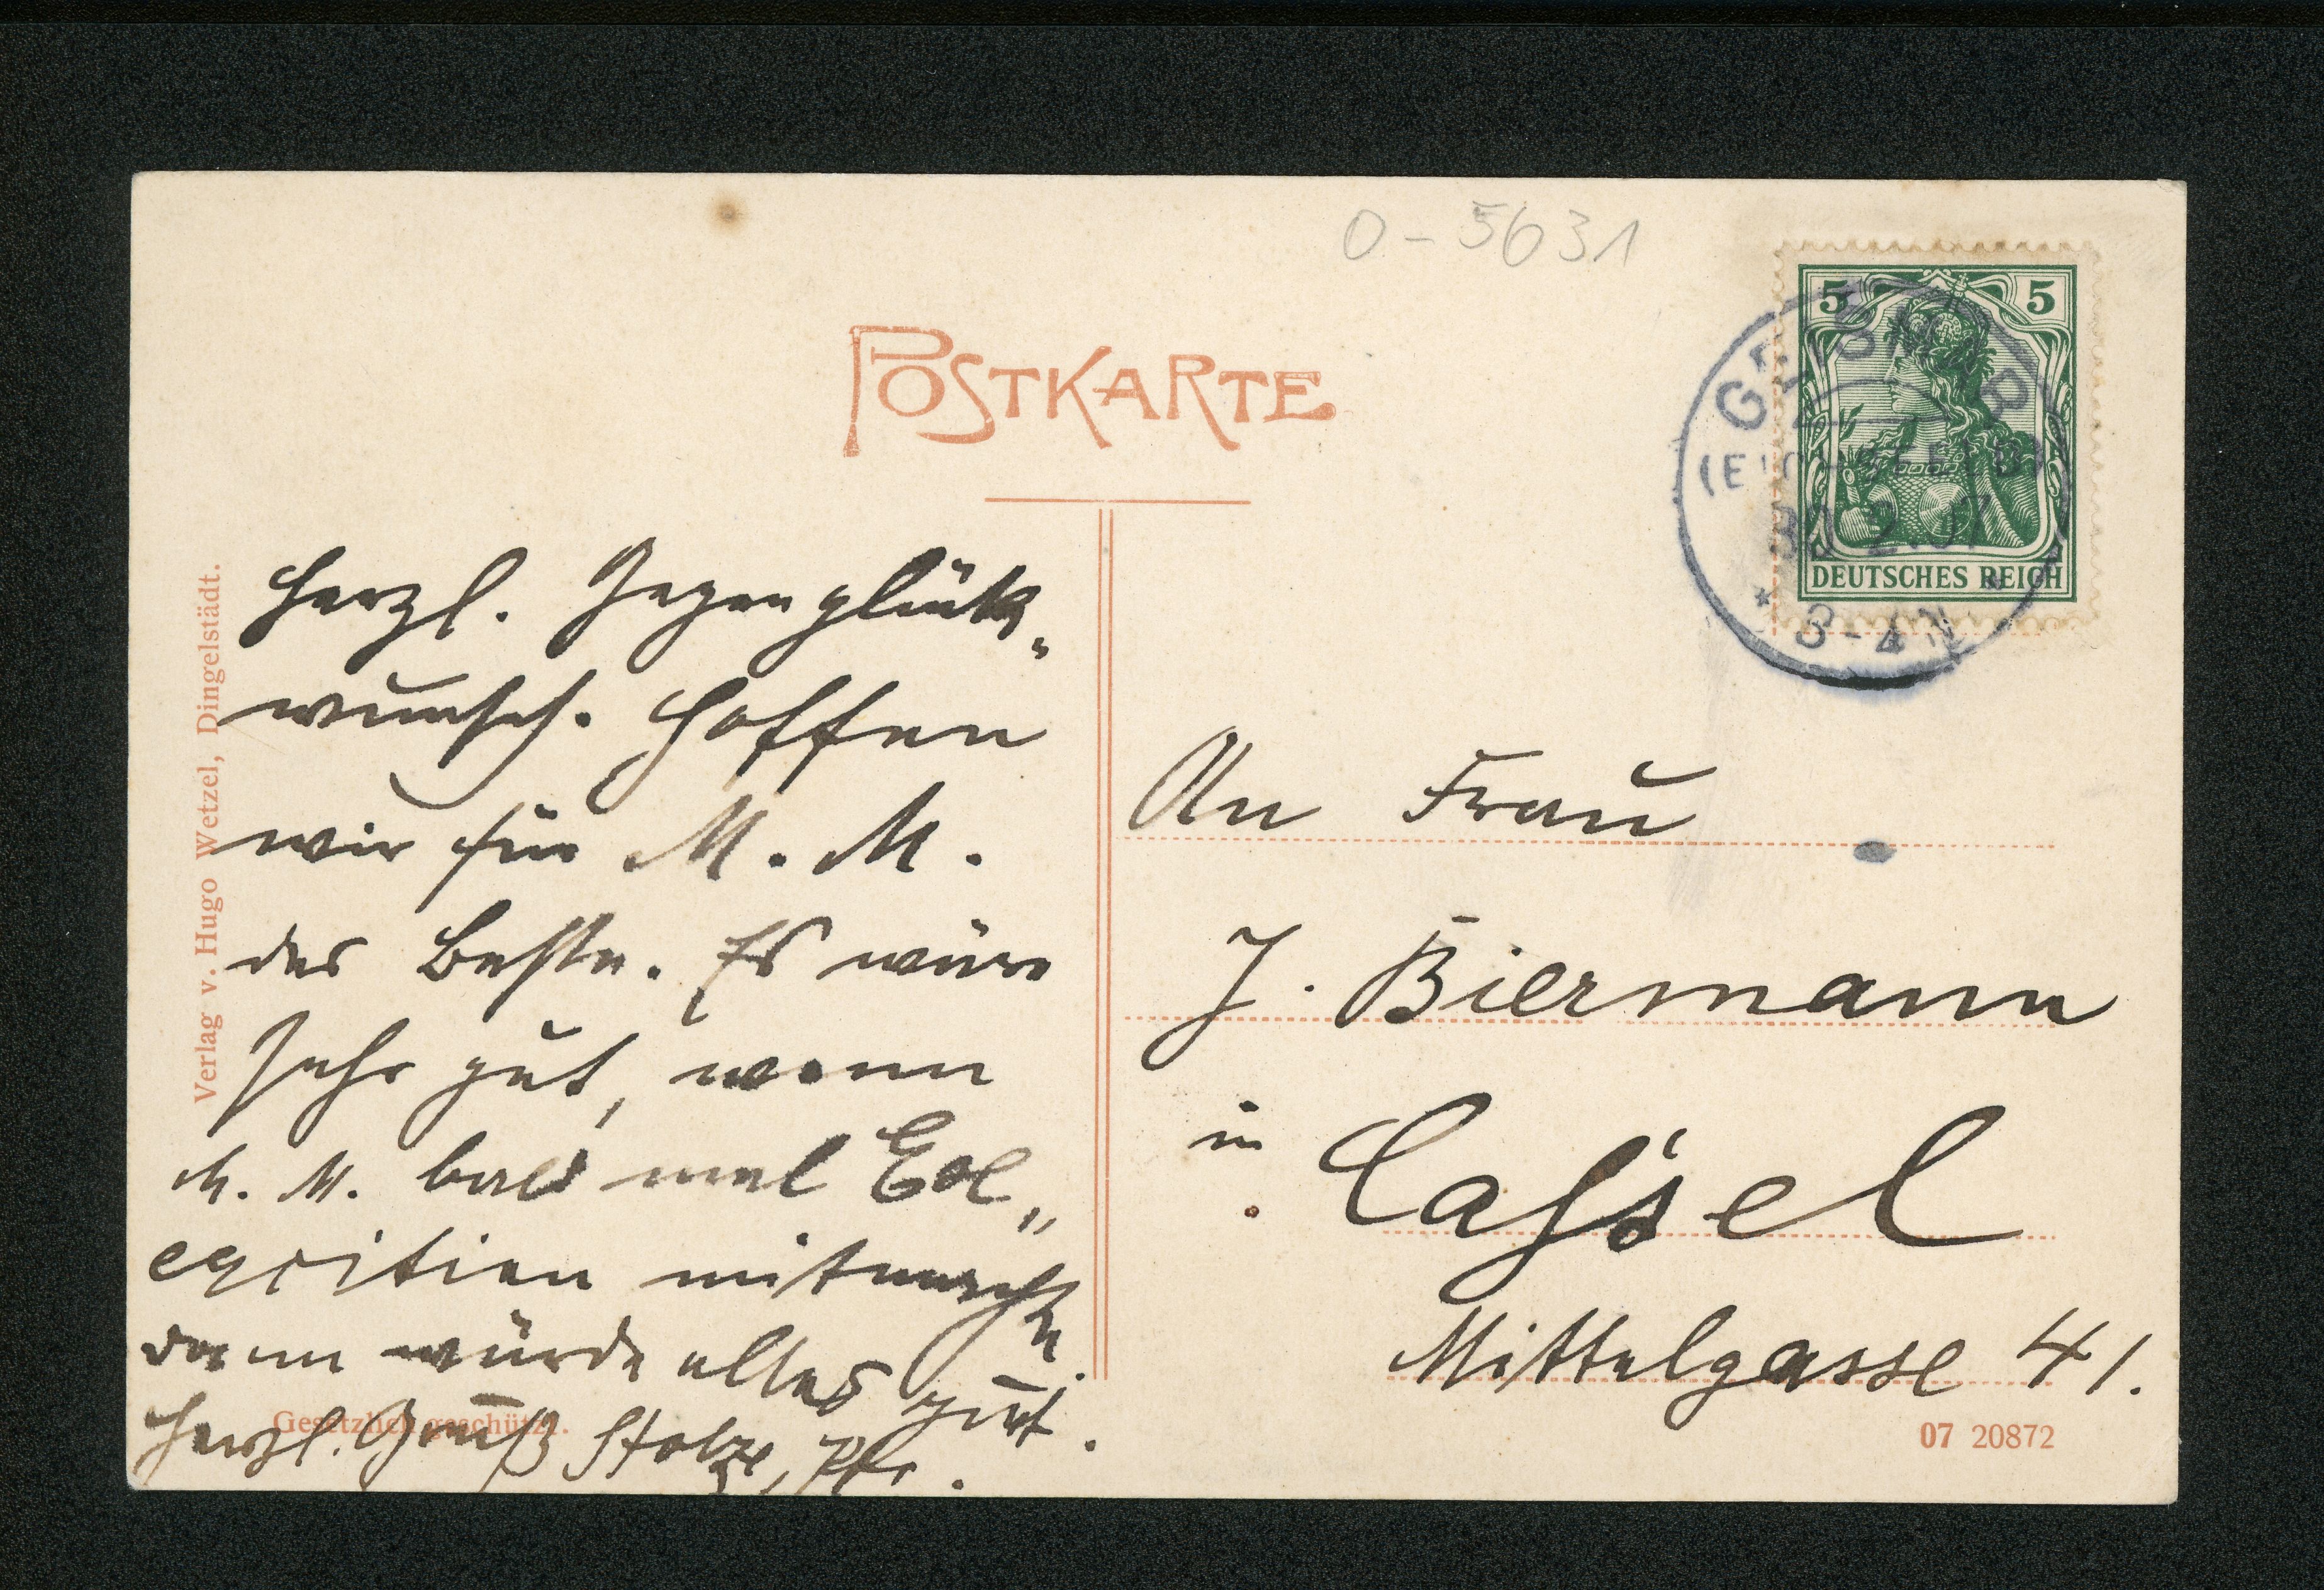 0-5631
POSTKARTE
5 5
DEUTSCHES REICH
3-4N
Herzl. Gegenglück-
wunsch. Hoffen
wir für M. M.
das Beste. Es wäre
sehr gut, wenn
M. M. bald mal
mitmacht.
dann würde alles gut.
Herzl. Gruß Stolze, Pfr.
An Frau
J. Biermann
in Cassel
Mittelgasse 41.
Verlag v. Hugo Wetzel, Dingelstädt.
Gesetzlich geschützt.
07 20872